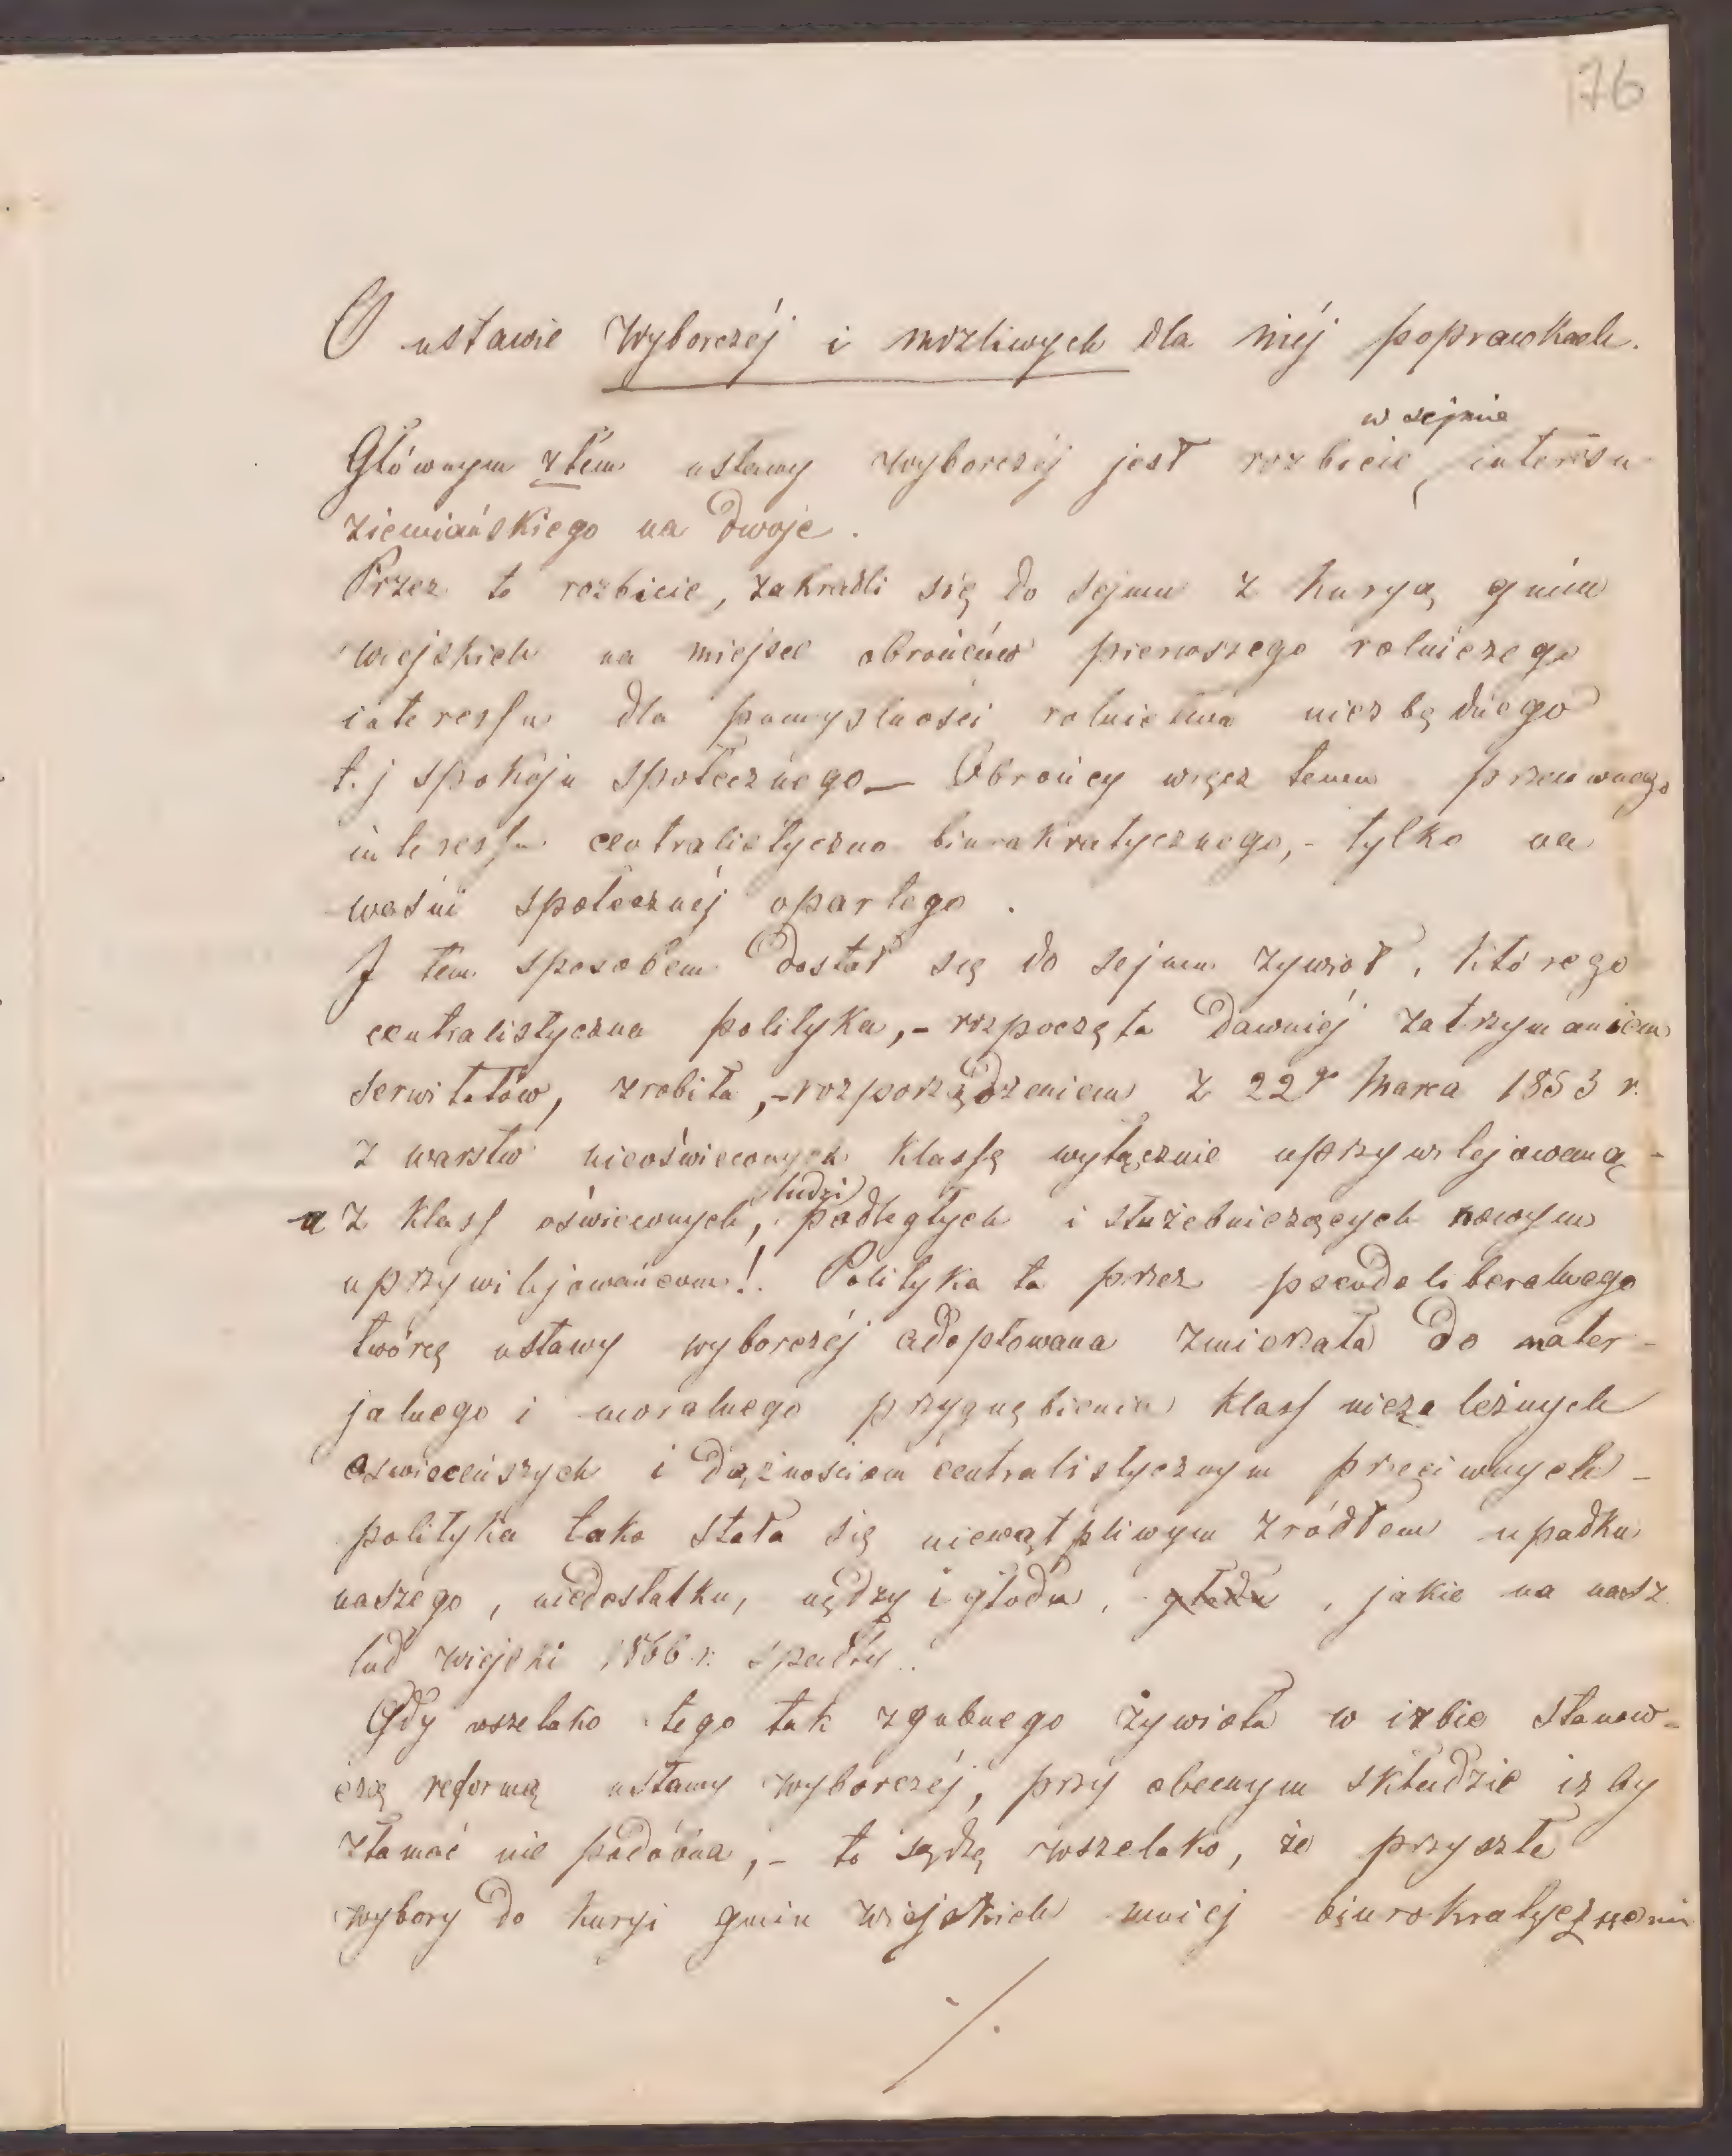 76
O ustawie wyborczéj i możliwych dla niéj poprawkach.
w sejmie
Głównym złem ustawy wyborczéj jest rozbicie, interesu
ziemiańskiego na dwoje.
Przez to rozbicie, zakradli się do sejmu z kuryą gmin
wiejskich na miejsce obrońców pierwszego rolniczego
interessu dla pomyslności rolnictwa niezbędnego
t.j spokoju społecznego — Obrońcy wręcz temu przeciwnego
interessu centralistyczno biurokratycznego, - tylko na
waśni społecznéj opartego.
I tem sposobem dostał się do sejmu żywioł, którego
centralistyczna polityka, - rozpoczęta dawniéj zatrzymaniem
serwitutów, zrobiła, - rozporządzeniem z 22go Marca 1853 r.
z warstw nieoświeconych klassę wyłącznie uprzywilejowaną -
ludzi
a z klass oświeconych, podległych i służebniczących nowym
uprzywilejowańcom!. Polityka ta przez pseudoliberalnego
twórcę ustawy wyborczéj adoptowana zmierzała do mater-
jalnego i moralnego przygnębienia klass niezależnych
oswieceńszych i dążnościom centralistycznym przeciwnych -
polityka taka stała się niewątpliwym źródłem upadku
naszego, niedostatku, nędzy i głodu, głodu, jakie na nasz
lud wiejski 1866 r. spadły.
Gdy wszelako tego tak zgubnego żywiołu w izbie stanow-
czą reformą ustawy wyborczéj, przy obecnym składzie izby
złamać nie podobna, - to sądzę wszelako, że przyszłe
wybory do kuryi gmin wiejskich mniej biurokratycznemi
./.